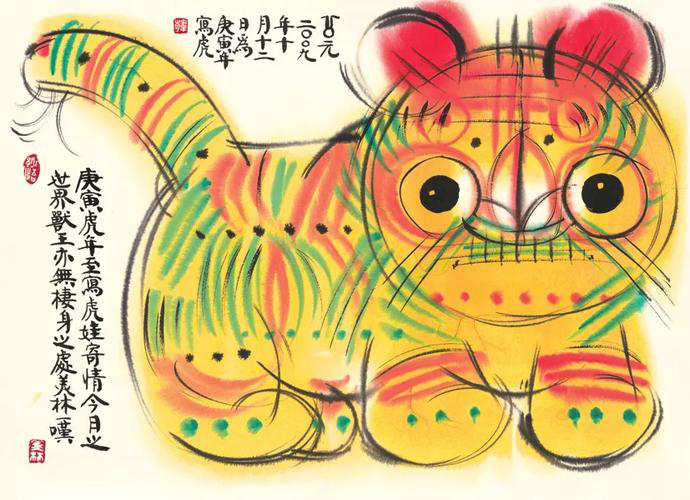 公元
二〇〇九
年十
月十二
日為
庚寅年
寫虎
庚寅虎年至寫虎娃寄情今日之
世界獸王亦無棲身之處美林一嘆
美林